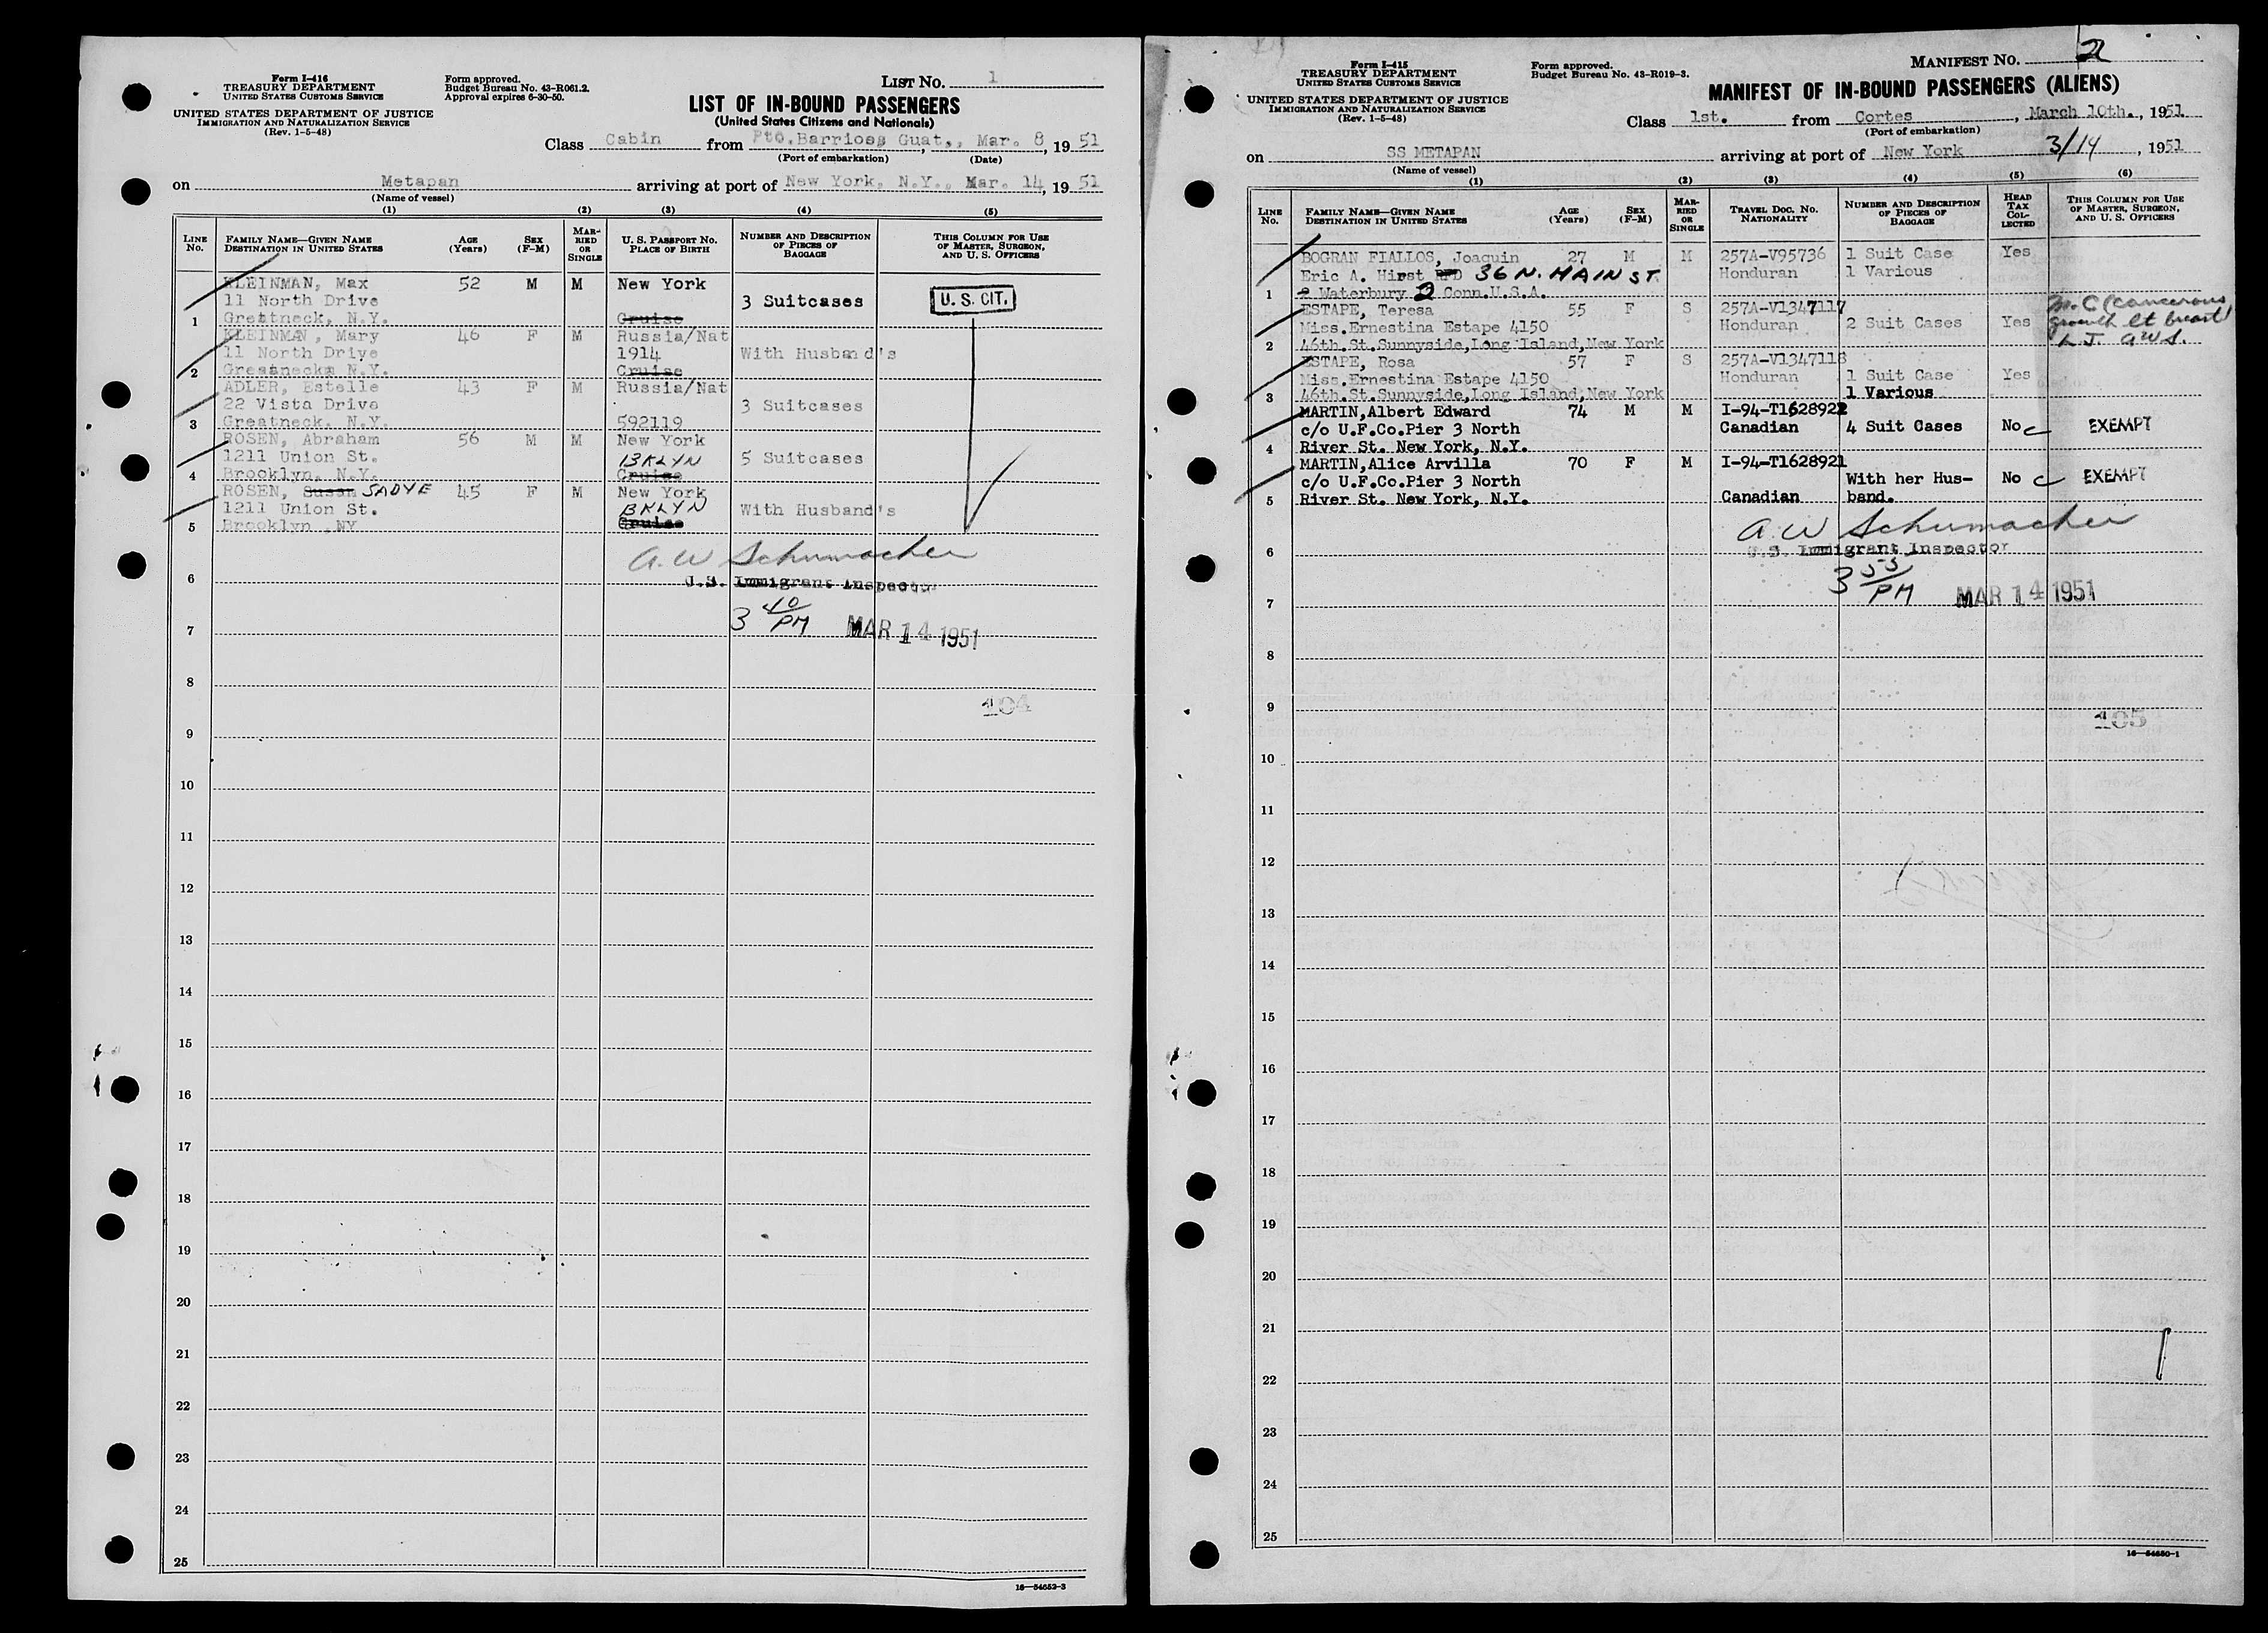 Form I-416
TREASURY DEPARTMENT
UNITED STATES CUSTOMS SERVICE
UNITED STATES DEPARTMENT OF JUSTICE
IMMIGRATION AND NATURALIZATION SERVICE
(Rev. 1-5-48)
Form approved.
Budget Bureau No. 43-R061.2.
Approval expires 6-30-50.
LIST No. 1
LIST OF IN-BOUND PASSENGERS
(United States Citizens and Nationals)
Class Cabin from Pto.Barrios, Guat., Mar. 8, 19 51
(Port of embarkation) (Date)
on Metapan arriving at port of New York, N.Y., Mar. 14, 19 51
(Name of vessel)
(1) (2) (3) (4) (5)
LINE No. FAMILY NAME—GIVEN NAME DESTINATION IN UNITED STATES AGE (Years) SEX (F-M) MARRIED OR SINGLE U. S. PASSPORT No. PLACE OF BIRTH NUMBER AND DESCRIPTION OF PIECES OF BAGGAGE THIS COLUMN FOR USE OF MASTER, SURGEON, AND U. S. OFFICERS
KLEINMAN, Max 52 M M New York
11 North Drive 3 Suitcases U. S. CIT.
1 Greatneck, N.Y. Cruise
KLEINMAN, Mary 46 F M Russia/Nat
11 North Drive 1914 With Husband's
2 Greatneck, N.Y. Cruise
ADLER, Estelle 43 F M Russia/Nat
22 Vista Drive 3 Suitcases
3 Greatneck, N.Y. 592119
ROSEN, Abraham 56 M M New York
1211 Union St. BKLYN 5 Suitcases
4 Brooklyn, N.Y. Cruise
ROSEN, Susan SADYE 45 F M New York
1211 Union St. BKLYN With Husband's
5 Brooklyn, NY Cruise
A. W Schumacher
6 U.S. Immigrant Inspector
3 40 PM MAR 14 1951
7
8
104
9
10
11
12
13
14
15
16
17
18
19
20
21
22
23
24
25
16—54652-3
Form I-415
TREASURY DEPARTMENT
UNITED STATES CUSTOMS SERVICE
UNITED STATES DEPARTMENT OF JUSTICE
IMMIGRATION AND NATURALIZATION SERVICE
(Rev. 1-5-48)
Form approved.
Budget Bureau No. 43-R019-3.
MANIFEST No. 2
MANIFEST OF IN-BOUND PASSENGERS (ALIENS)
Class 1st. from Cortes, March 10th., 1951
(Port of embarkation)
on SS METAPAN arriving at port of New York 3/14, 1951
(Name of vessel)
(1) (2) (3) (4) (5) (6)
LINE No. FAMILY NAME—GIVEN NAME DESTINATION IN UNITED STATES AGE (Years) SEX (F-M) MARRIED OR SINGLE TRAVEL DOC. NO. NATIONALITY NUMBER AND DESCRIPTION OF PIECES OF BAGGAGE HEAD TAX COLLECTED THIS COLUMN FOR USE OF MASTER, SURGEON, AND U. S. OFFICERS
BOGRAN FIALLOS, Joaquin 27 M M 257A-V95736 1 Suit Case Yes
Eric A. Hirst RFD 36 N. MAIN ST. Honduran 1 Various
1 2 Waterbury 2 Conn.U.S.A.
ESTAPE, Teresa 55 F S 257A-V1347117 M.C (cancerous
Miss.Ernestina Estape 4150 Honduran 2 Suit Cases Yes growth lt breast)
2 46th.St.Sunnyside,Long Island,New York AWS.
ESTAPE, Rosa 57 F S 257A-V1347118
Miss.Ernestina Estape 4150 Honduran 1 Suit Case Yes
3 46th.St.Sunnyside,Long Island,New York 1 Various
MARTIN,Albert Edward 74 M M I-94-T1628922
c/o U.F.Co.Pier 3 North Canadian 4 Suit Cases No EXEMPT
4 River St. New York, N.Y.
MARTIN,Alice Arvilla 70 F M I-94-T1628921
c/o U.F.Co.Pier 3 North With her Hus- No EXEMPT
5 River St. New York, N.Y. Canadian band.
A. W Schumacher
6 U.S. Immigrant Inspector
3 55 PM MAR 14 1951
7
8
9
105
10
11
12
13
14
15
16
17
18
19
20
21
22
23
24
25
16—54650-1